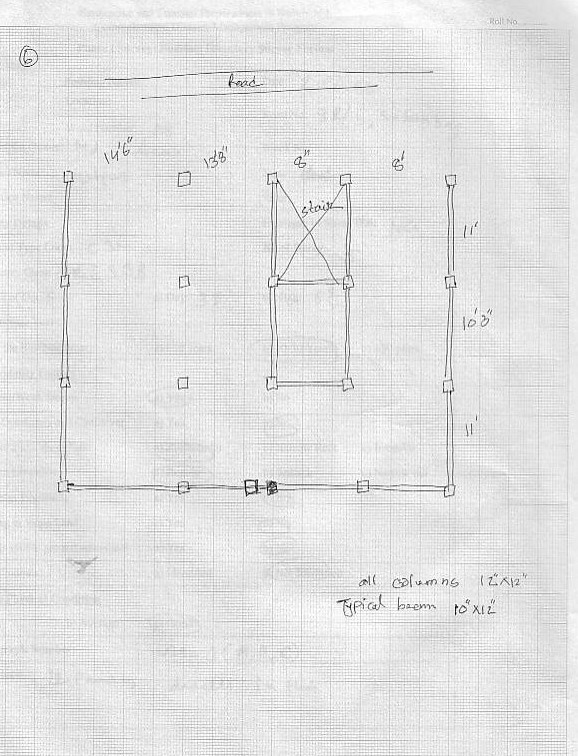 Roll No.
6
Road
14'6" 13'8" 8" 8'
stair
11'
10'3"
11'
all columns 12"X12"
Typical beam 10"X12"